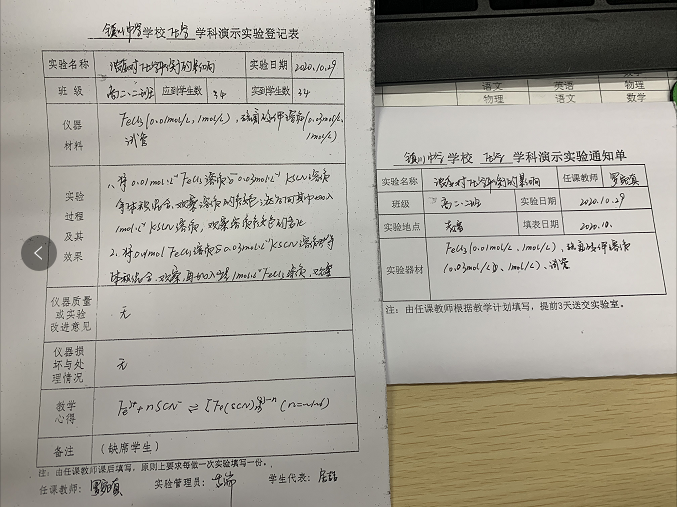 镇川中学学校 化学 学科演示实验登记表
实验名称 浓度对化学平衡的影响 实验日期 2020.10.29
班 级 高二、二班 应到学生数 34 实到学生数 34
仪器材料 FeCl3(0.01mol/L, 1mol/L), 硫氰化钾溶液(0.03mol/L, 1mol/L)
试管
实验过程及其效果
1. 将0.01mol·L⁻¹ FeCl3溶液与0.03mol·L⁻¹ KSCN溶液
等体积混合, 观察溶液的颜色
1mol·L⁻¹ KSCN溶液, 观察溶液颜色的变化
2. 将 FeCl3溶液与0.03mol·L⁻¹ KSCN溶液等
体积混合, 观察 再加入 1mol·L⁻¹ FeCl3溶液, 观察
仪器质量或实验改进意见 无
仪器损坏与处理情况 无
教学心得 Fe³⁺ + nSCN⁻ ⇌ [Fe(SCN)n]³⁻ⁿ
备注 (缺席学生)
注: 由任课教师课后填写, 原则上要求每做一次实验填写一份。
任课教师: 实验管理员: 学生代表:
语文 英语 物理
物理 语文 数学
镇川中学 学校 化学 学科演示实验通知单
实验名称 浓度对化学平衡的影响 任课教师
班级 高二、二班 实验日期 2020.10.29
实验地点 填表日期 2020.10.
实验器材 FeCl3(0.01mol/L, 1mol/L), 硫氰化钾溶液
(0.03mol/L, 1mol/L)、试管
注: 由任课教师根据教学计划填写, 提前3天送交实验室。